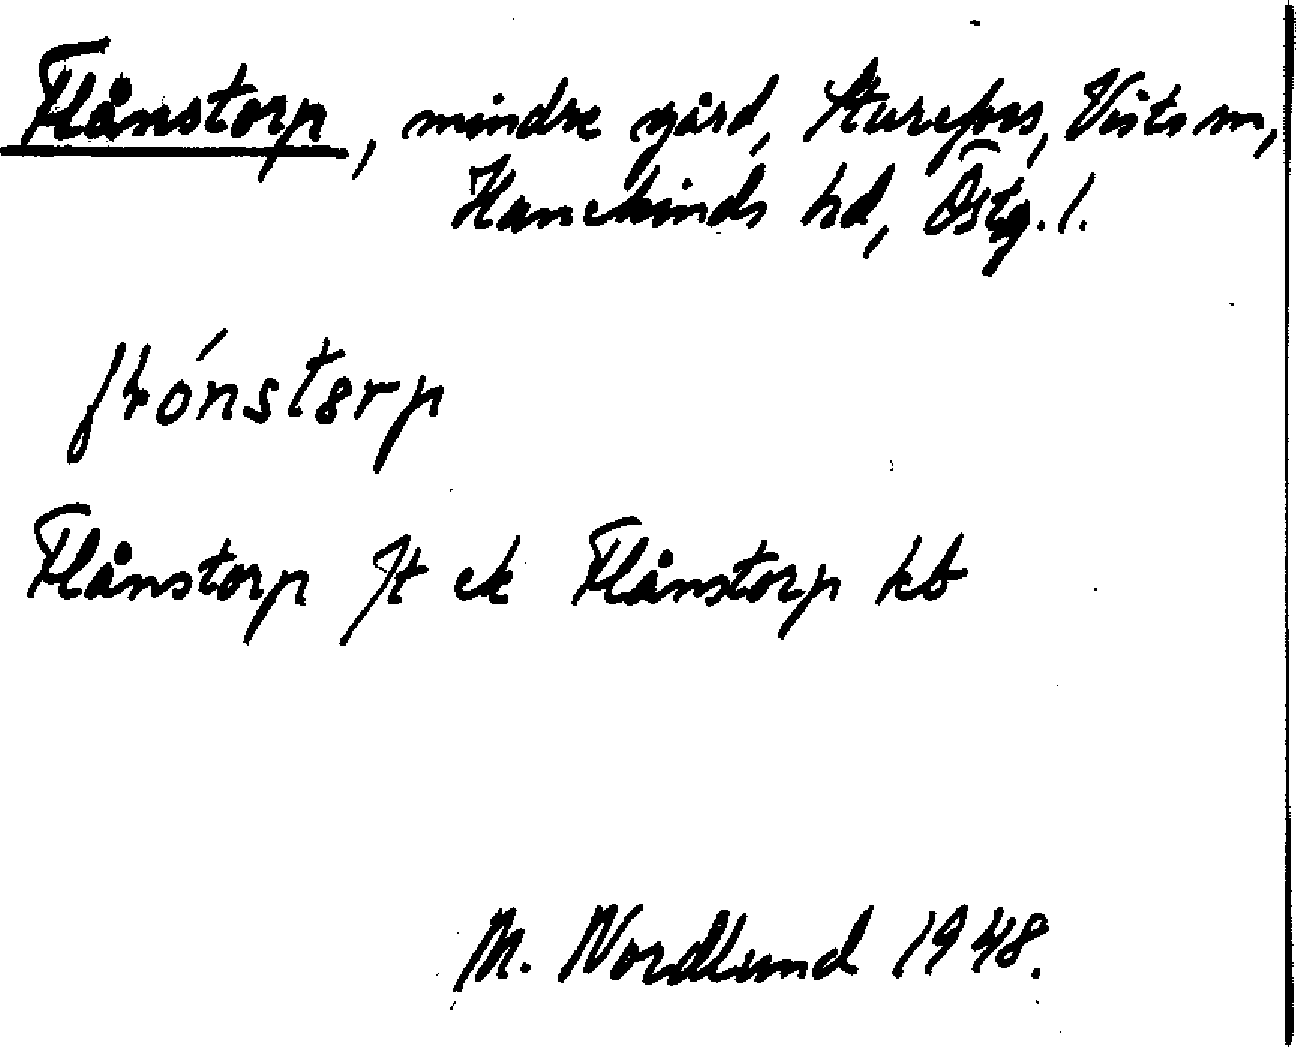 Flånstorp, mindre gård, Sturefors, Vists sn,
Hanekinds hd, Östg. l.
frónstorp
Flånstorp Jt ek Flånstorp kb
M. Nordlund 1948.